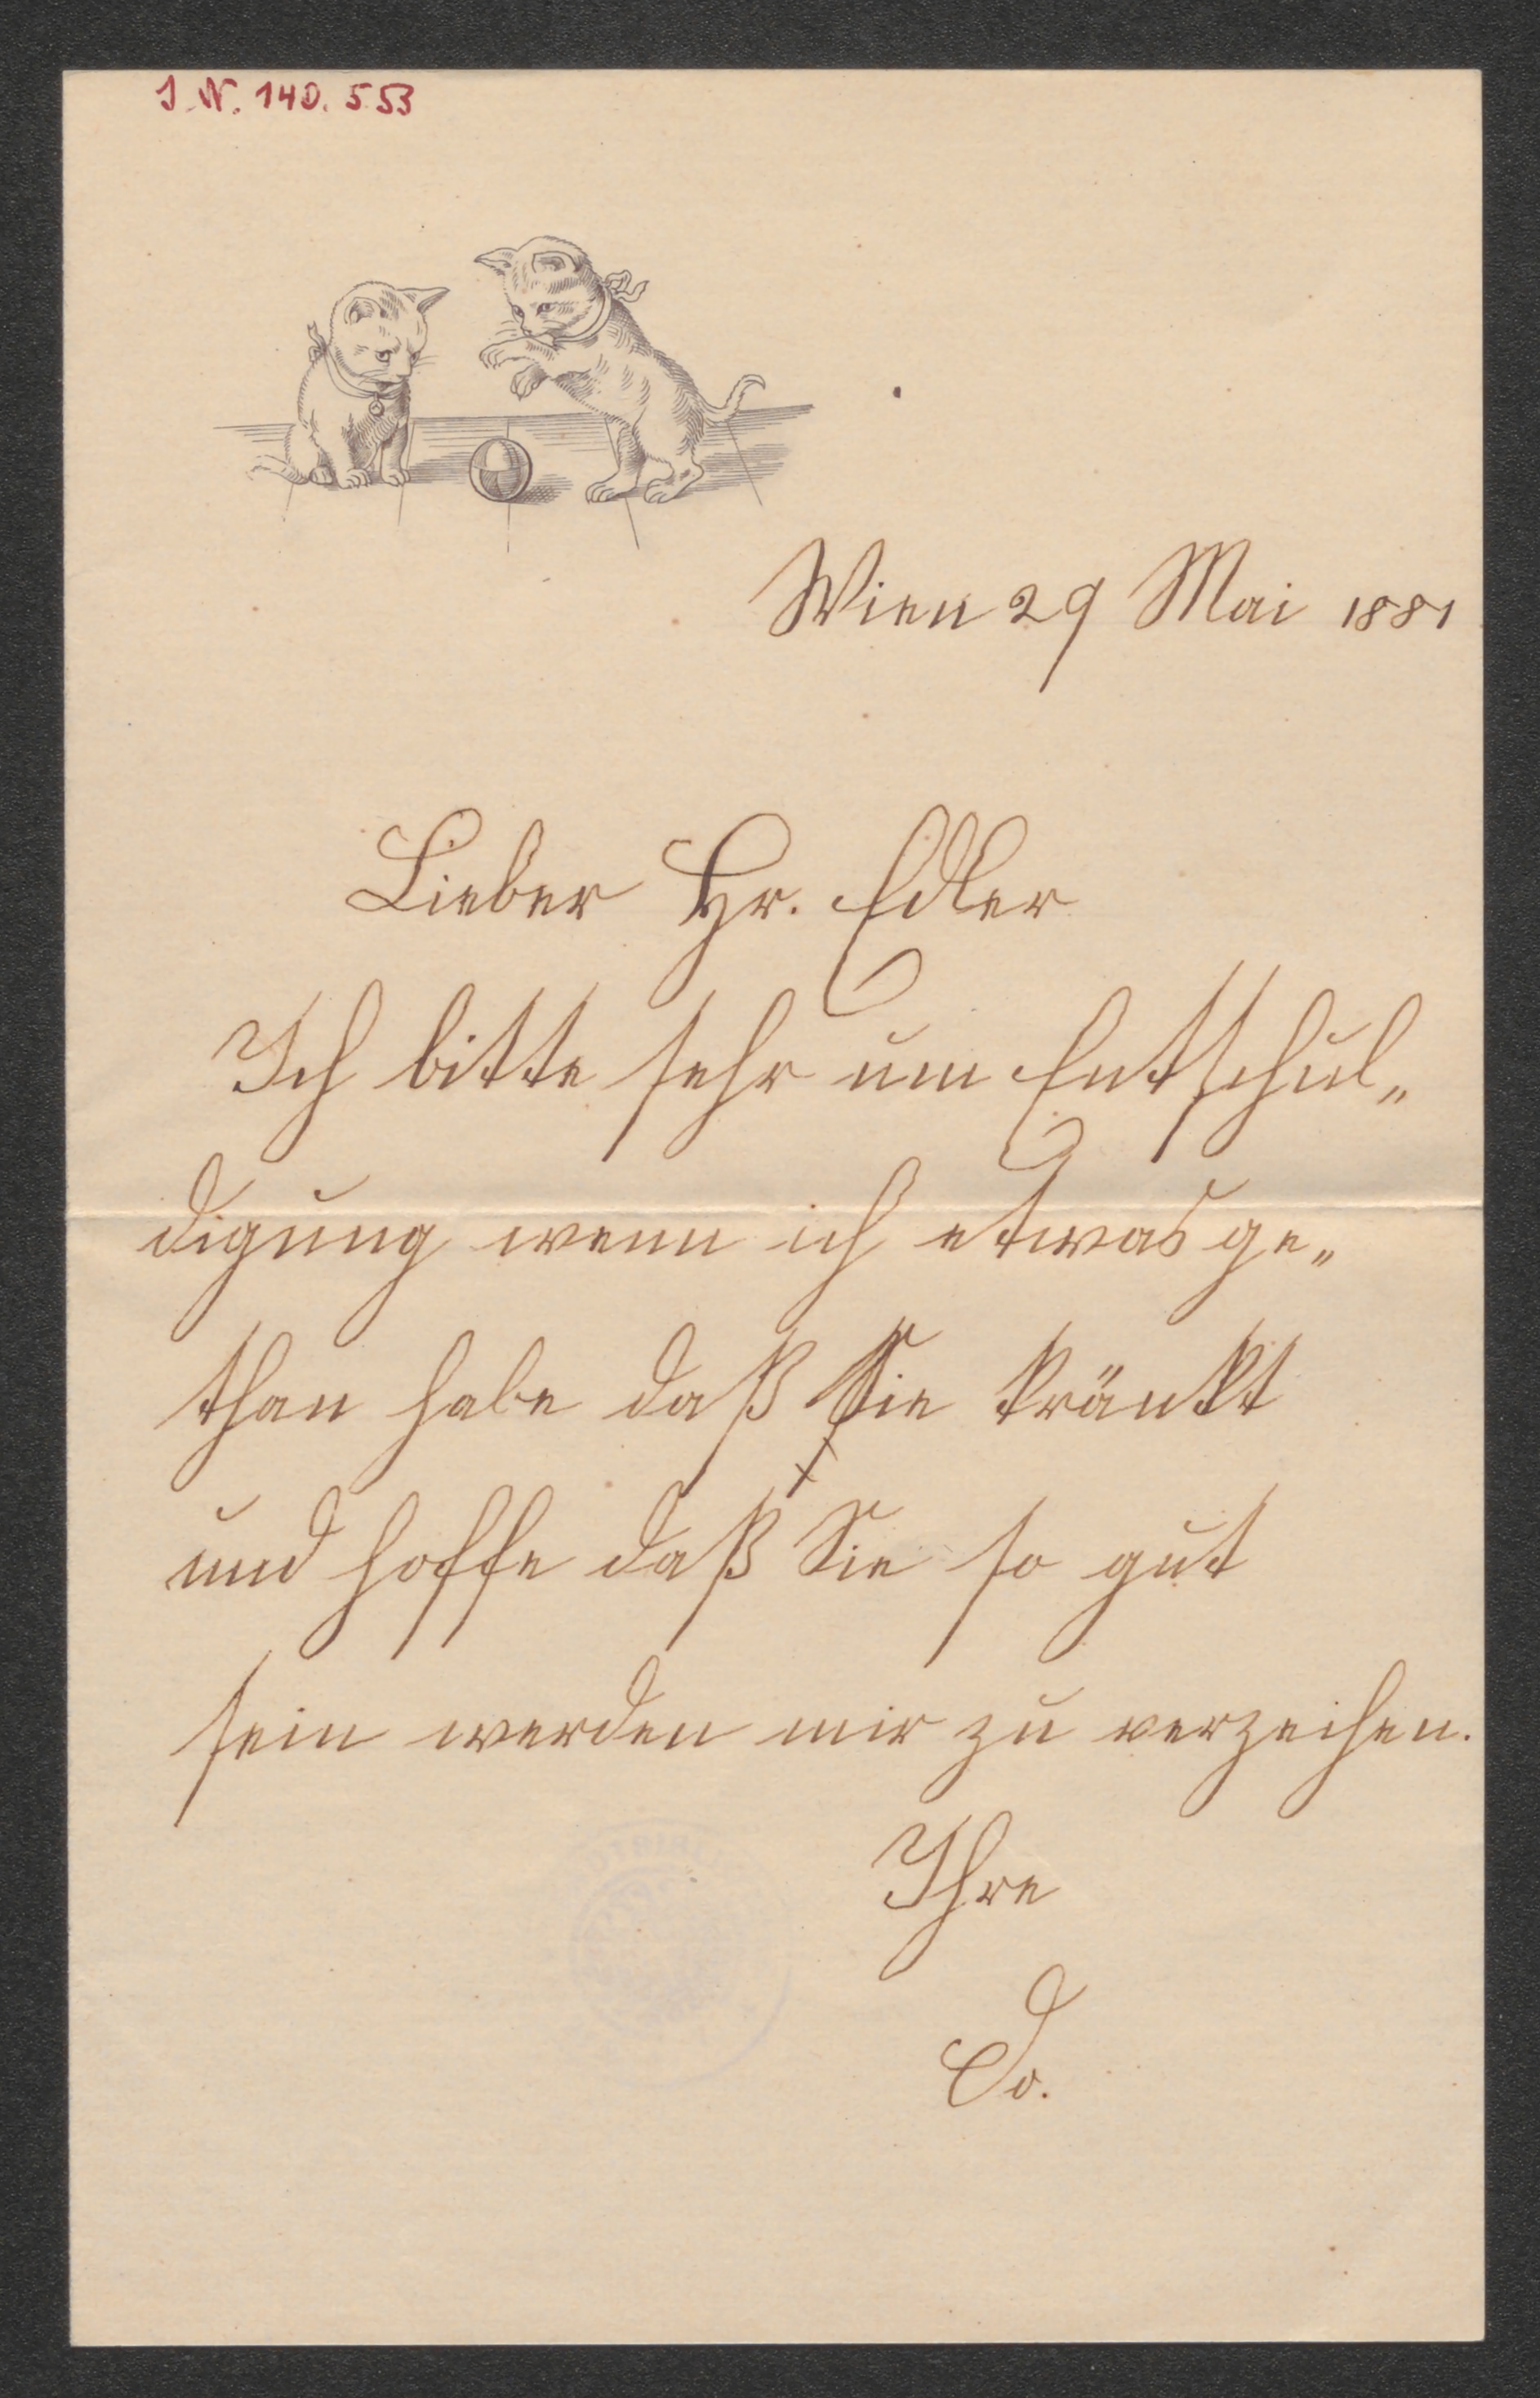 I.N. 140.553
Wien 29 Mai 1881
Lieber Hr. Edler
Ich bitte sehr um Entschul„
digung wenn ich etwas ge„
than habe daß Sie kränkt
und hoffe daß Sie so gut
sein werden mir zu verzeihen.
Ihre
Do.